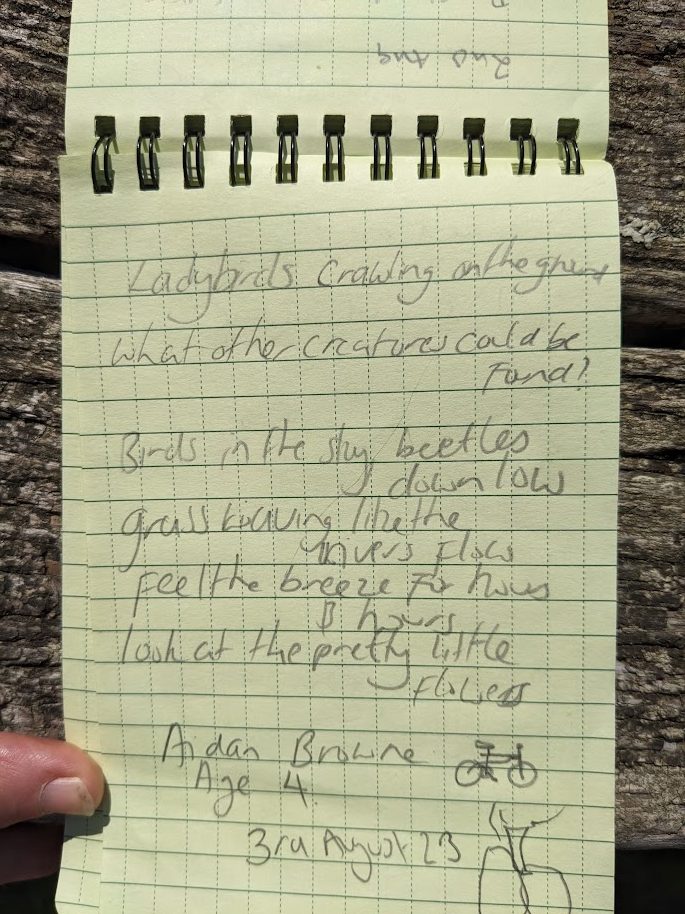 2nd Aug
Ladybirds Crawling on the ground
What other creatures could be
Found?
Birds in the sky beetles
down low
grass waving like the
rivers flow
Feel the breeze For hours
& hours
look at the pretty little
flowers
Aidan Browne
Age 4
3rd August 23